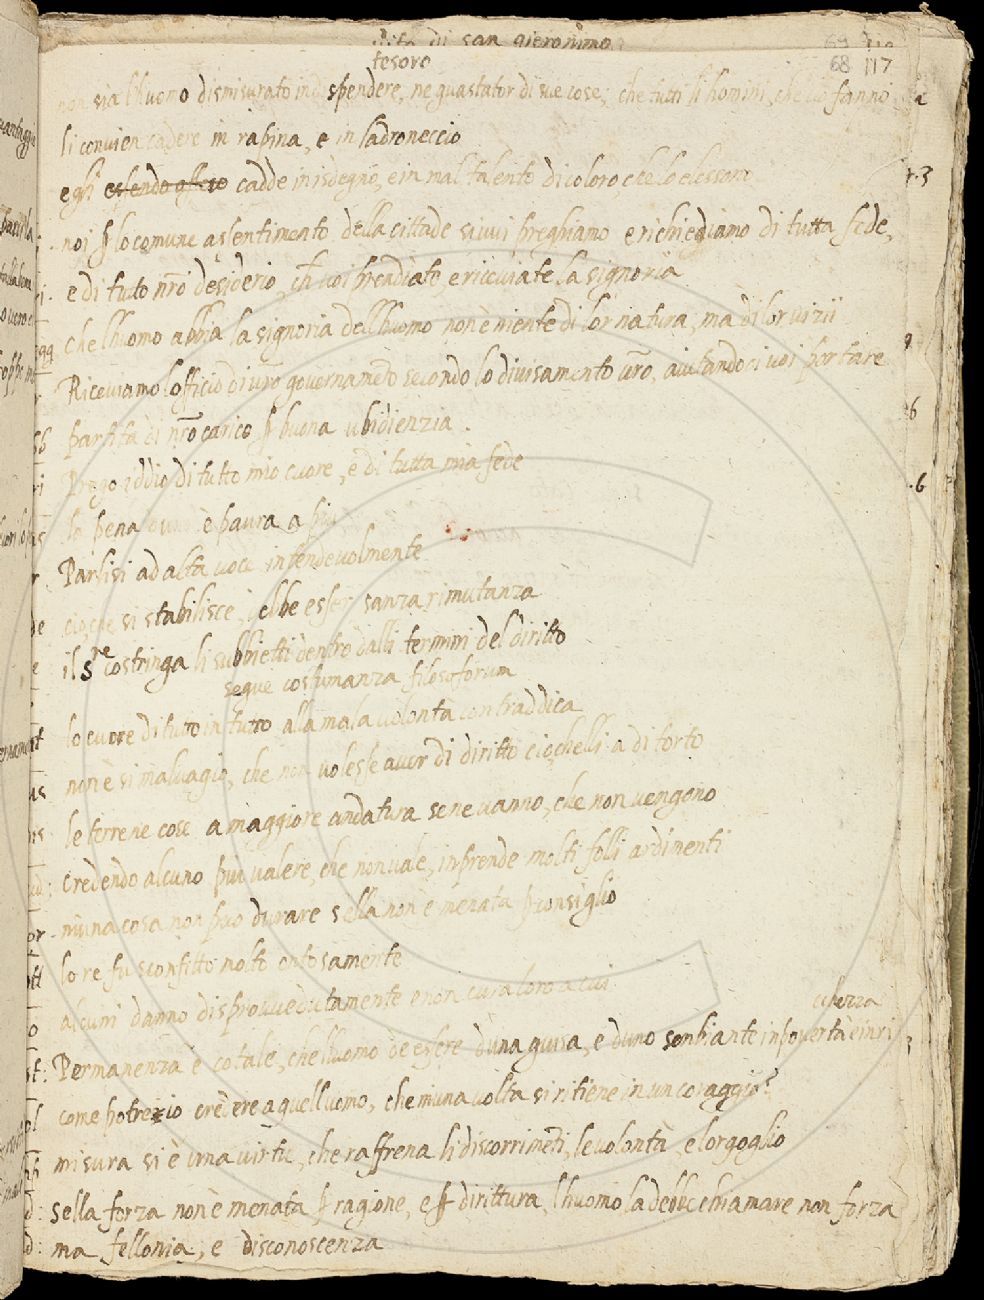 vita di san gieronimo
69 118
68 117
tesoro
non sia lhuomo dismisurato in dispendere, ne guastator di sue cose, che tutti li homini, che cio fanno
li convien cadere in rapina, e in ladroneccio
egli essendo cadde in isdegno, e in mal talento di coloro, che lo elessono
noi p̱ lo comune assentimento della cittade sivvi preghiamo e richiediamo di tutta fede,
e di tutto nrō desiderio, ch̄ voi prendiate, e riceviate la signoria
che lhuomo abbia la signoria dellhuomo non è niente di lor natura, ma di lor vizii
Riceviamo lofficio di vrō governamēto secondo lo divisamento vrō, aiutandoci voi portare
partita di nrō carico p̱ buona ubidienzia.
Prego iddio di tutto mio cuore, e di tutta mia fede
la pena è paura a
Partisi ad alta voce intendevolmente
cioche si stabilisce, debbe esser sanza rimutanza
il sre costringa li subbietti dentro dalli termini del diritto
segue costumanza filosoforum
lo cuore di tutto in tutto alla mala volontà contraddica
non è si malvagio, che non volesse aver di diritto cio, chelli a di torto
le terrene cose a maggiore andatura sene vanno, che non vengono
credendo alcuno piu valere, che non vale, inprende molti folli ardimenti
niuna cosa non puo durare sella non è menata p̱ consiglio
lo re fu sconfitto molto ontosamente
alcuni danno disprovvedutamente e non cura loro a cui
cchezza
Permanenza è cotale, che lluomo dee essere duna guisa, e duno senbiante in poverta è in ri
come potrezio credere a quelluomo, che niuna volta si ritiene in un coraggio?
misura si è una virtu, che raffrena li discorrimēti, le volontà, e lorgoglio
sella forza non è menata p̱ ragione, e p̱ dirittura, lhuomo la debbe chiamare non forza
ma fellonia, e disconoscenza